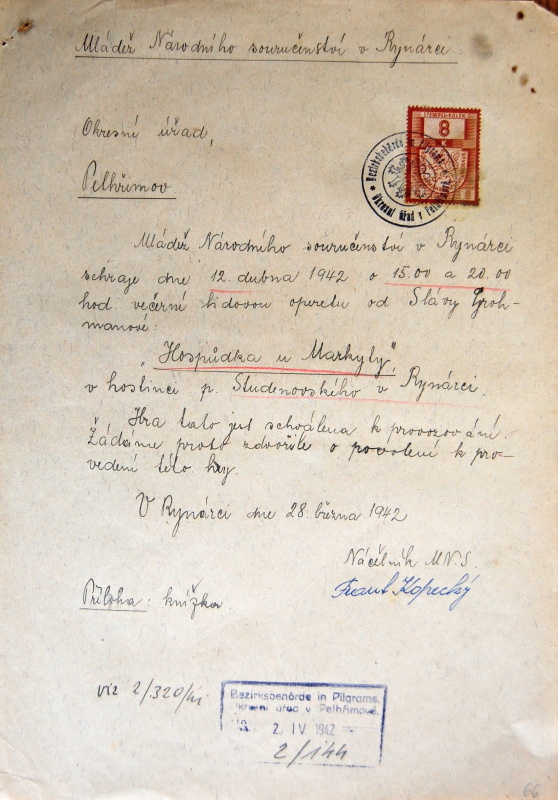 Mládež Národního souručenství v Rynárci
Okresní úřad,
Pelhřimov.
STEMPEL-KOLEK
8
K
Okresní úřad v
Mládež Národního souručenství v Rynárci
sehraje dne 12. dubna 1942 o 15.00 a 20.00
hod. večerní lidovou operetu od Slávy Groh-
manové:
„Hospůdka u Markyty",
v hostinci p. Studenovského v Rynárci.
Hra tato jest schválena k provozování.
Žádáme proto zdvořile o povolení k pro-
vedení této hry.
V Rynárci dne 28. března 1942
Náčelník M.N.S.
Frant Kopecký
Příloha: knížka.
viz 2/320/41
Bezirksbehörde in Pilgrams,
Okresní úřad v Pelhřimově,
2. IV 1942
2/144
66